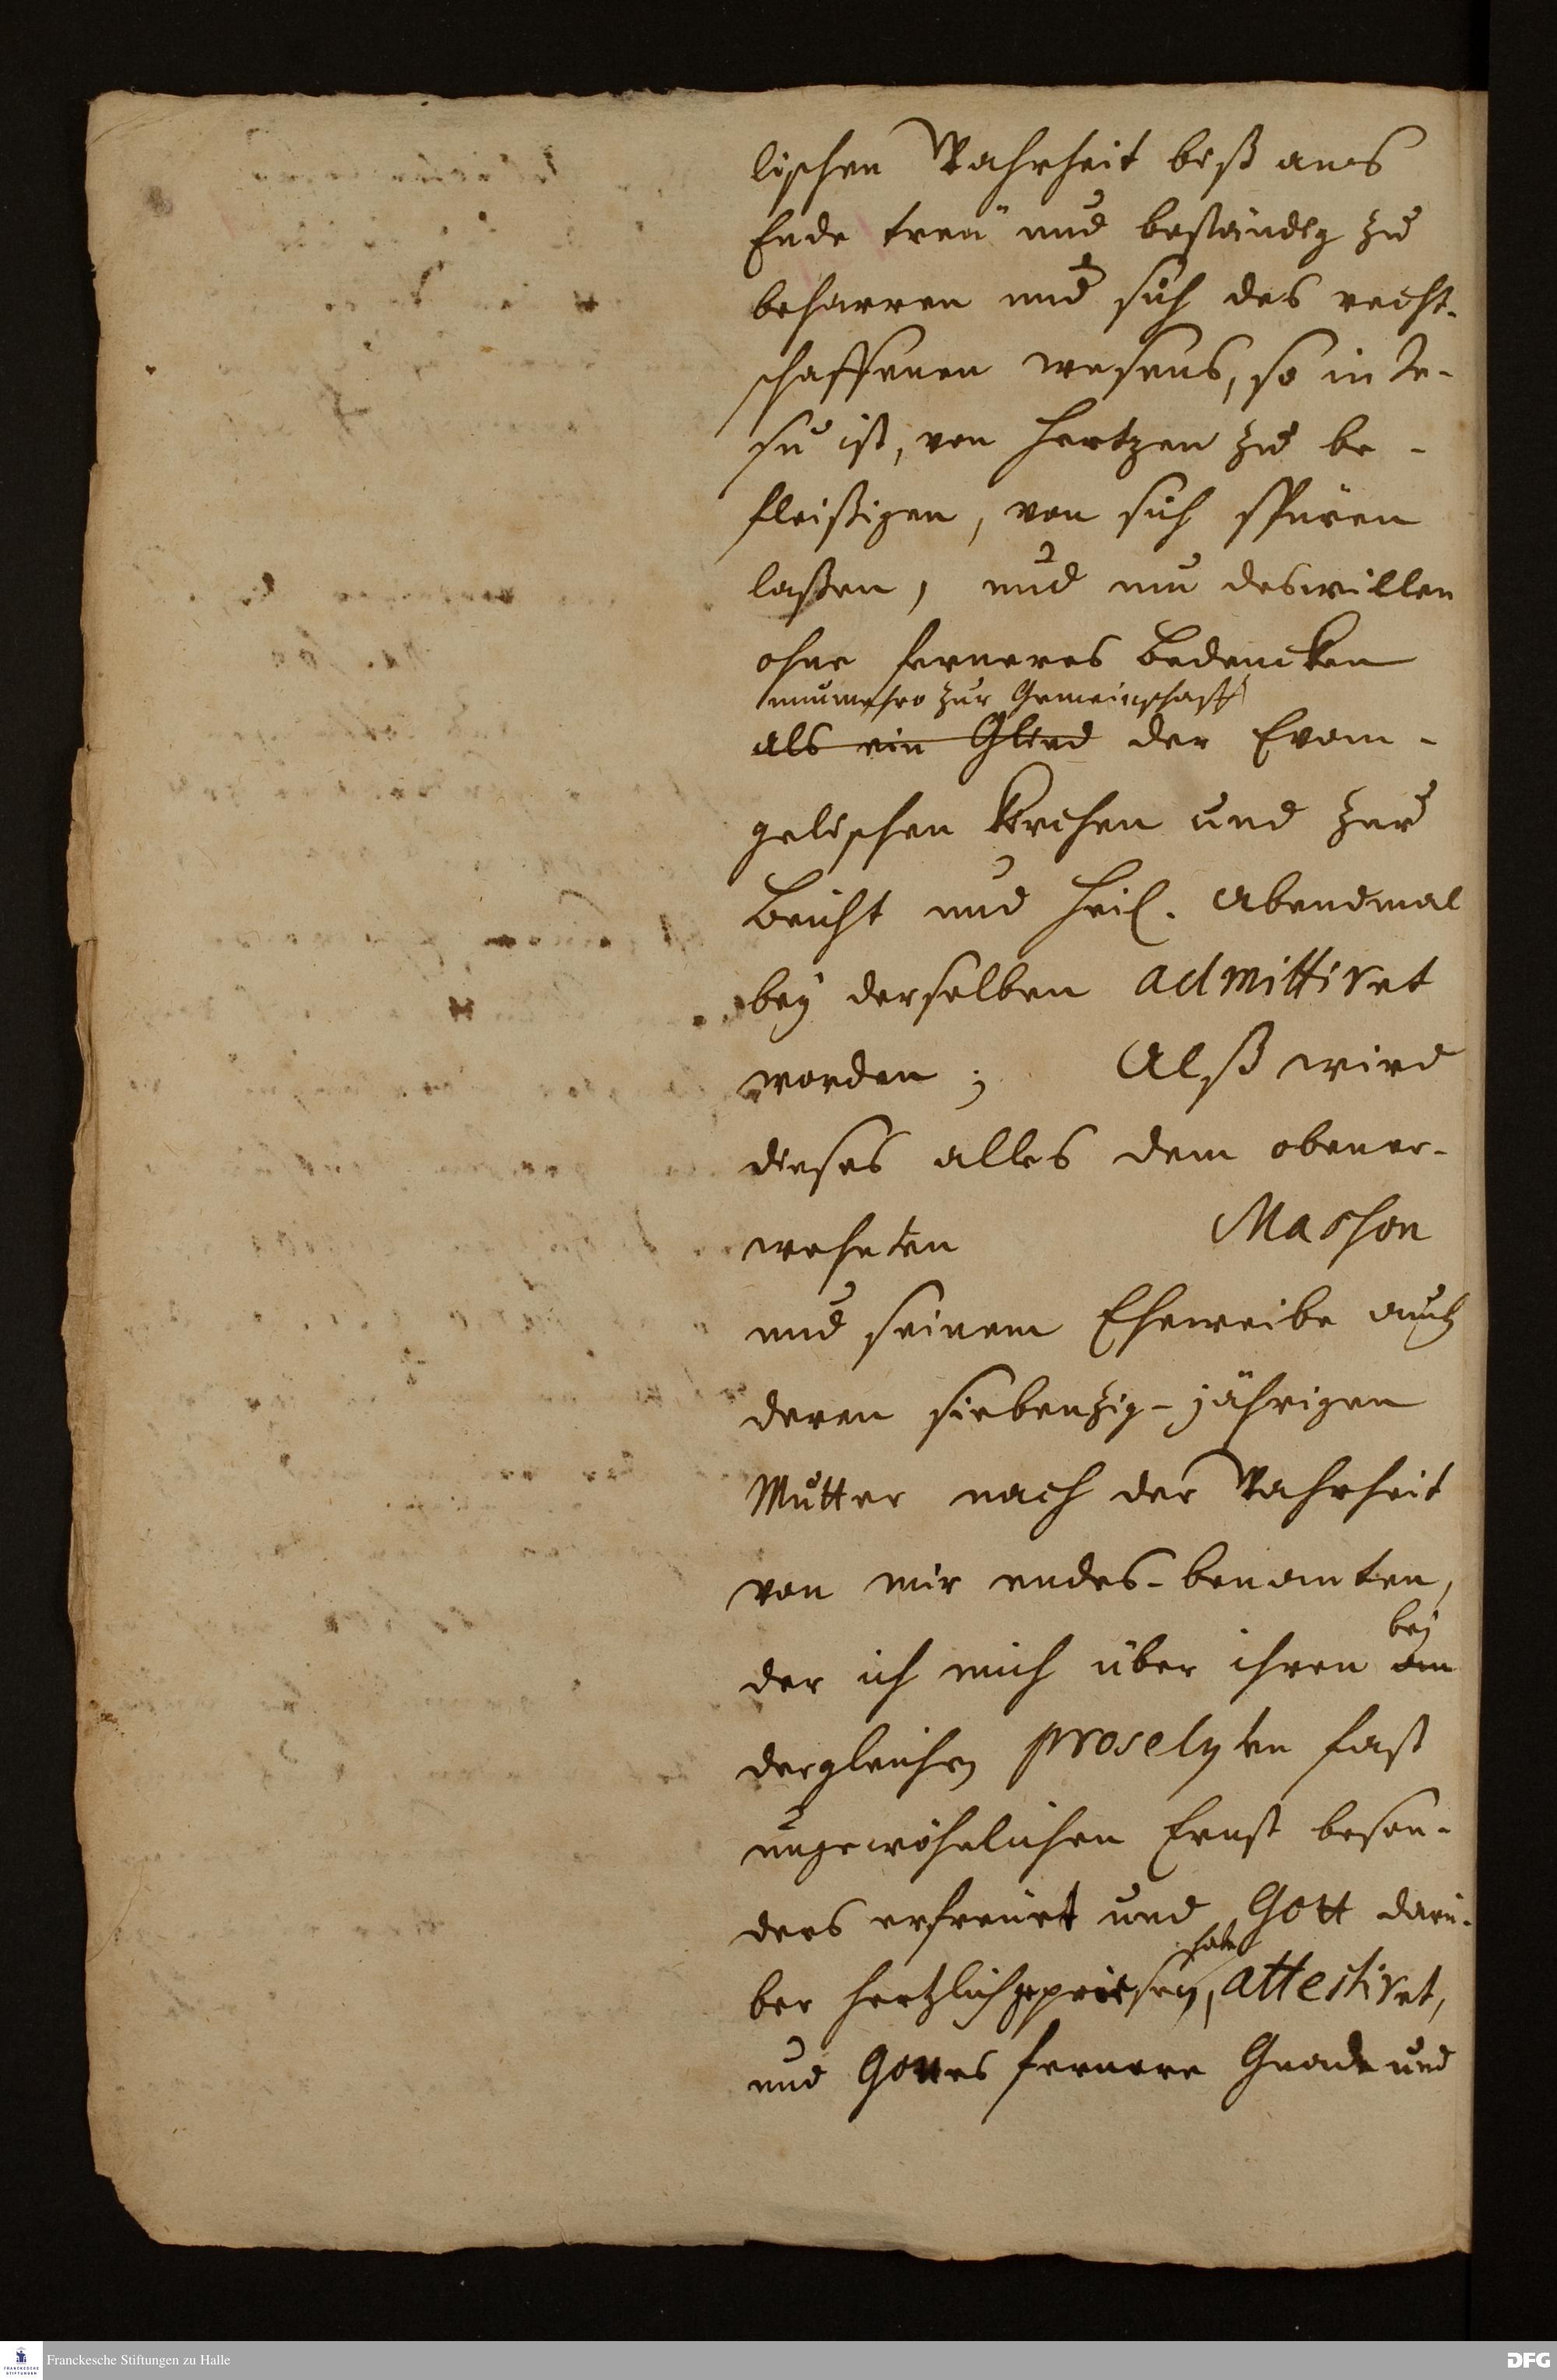 lischen Wahrheit biß ans
Ende treü und beständig zu
beharren und sich des recht-
schaffenen wesens, so in Je-
su ist, von Hertzen zu be-
fleißigen, von sich spüren
laßen, und um deswillen
ohne ferneres Bedencken
nunmehro zur Gemeinschafft
als ein Glied der Evan-
gelischen Kirchen und zur
Beicht und Heil. Abendmal
bey derselben admittiret
worden; Alß wird
dieses alles dem obener-
wehnten Masson
und seinem Eheweibe auch
deren siebenzig-jährigen
Mutter nach der Wahrheit
von mir endes-benamten,
bey
der ich mich über ihren an
dergleichen proselyten fast
ungewöhnlichen Ernst beson-
ders erfreuet und Gott darü-
habe
ber hertzlich gepriesen, attestiret,
und Gottes fernere Gnade und
Franckesche Stiftungen zu Halle
FRANCKESCHE STIFTUNGEN
DFG